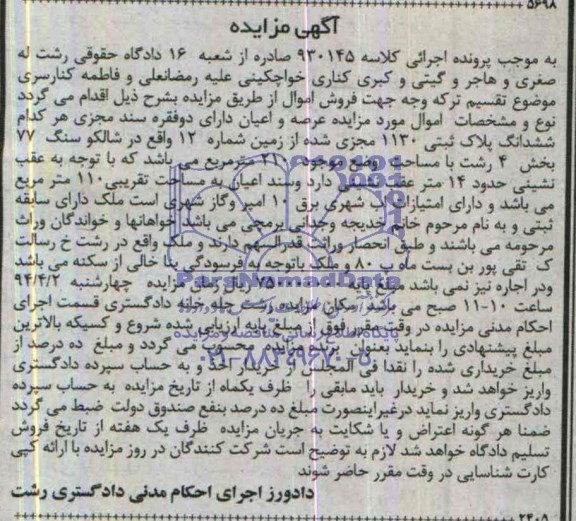 ۵۶۹۸
آگهی مزایده
به موجب پرونده اجرائی کلاسه ۹۳۰۱۴۵ صادره از شعبه ۱۶ دادگاه حقوقی رشت له
صغری و هاجر و گیتی و کبری کناری خواچکینی علیه رمضانعلی و فاطمه کنارسری
موضوع تقسیم ترکه وجه جهت فروش اموال از طریق مزایده بشرح ذیل اقدام می گردد
نوع و مشخصات اموال مورد مزایده عرصه و اعیان دارای دوفقره سند مجزی هر کدام
ششدانگ پلاک ثبتی ۱۱۳۰ مجزی شده از زمین شماره ۱۲ واقع در شالکو سنگ ۷۷
بخش ۴ رشت با مساحت وضع موجود ۲۱۰ مترمربع می باشد که با توجه به عقب
نشینی حدود ۱۴ متر عقب نشینی دارد وسند اعیان به مساحت تقریبی ۱۱۰ متر مربع
می باشد و دارای امتیازات آب شهری برق ۱۰ امپر وگاز شهری است ملک دارای سابقه
ثبتی و به نام مرحوم خانم خدیجه وجدانی پرمچی می باشد خواهانها و خواندگان وراث
مرحومه می باشند و طبق انحصار وراثت قدرالسهم دارند و ملک واقع در رشت خ رسالت
ک تقی پور بن بست ماه پ ۸۰ و ملک باتوجه به فرسودگی بنا خالی از سکنه می باشد
ودر اجاره نیز نمی باشد مبلغ پایه روز مزایده چهارشنبه ۹۴/۴/۲
ساعت ۱۰-۱۱ صبح می باشد مکان مزایده رشت جله خانه دادگستری قسمت اجرای
احکام مدنی مزایده در وقت مقرر فوق از مبلغ پایه ارزیابی شده شروع و کسیکه بالاترین
مبلغ پیشنهادی را بنماید بعنوان برنده مزایده محسوب می گردد و مبلغ ده درصد از
مبلغ خریداری شده را نقدا فی المجلس از خریدار اخذ و به حساب سپرده دادگستری
واریز خواهد شد و خریدار باید مابقی را ظرف یکماه از تاریخ مزایده به حساب سپرده
دادگستری واریز نماید درغیراینصورت مبلغ ده درصد بنفع صندوق دولت ضبط می گردد
ضمنا هر گونه اعتراض و یا شکایت به جریان مزایده ظرف یک هفته از تاریخ فروش
تسلیم دادگاه خواهد شد لازم به توضیح است شرکت کنندگان در روز مزایده با ارائه کپی
کارت شناسایی در وقت مقرر حاضر شوند
دادورز اجرای احکام مدنی دادگستری رشت
ParsNamadData
پایگاه اطلاع رسانی مناقصه و مزایده
۰۲۱-۸۸۳۴۹۶۷۰-۵